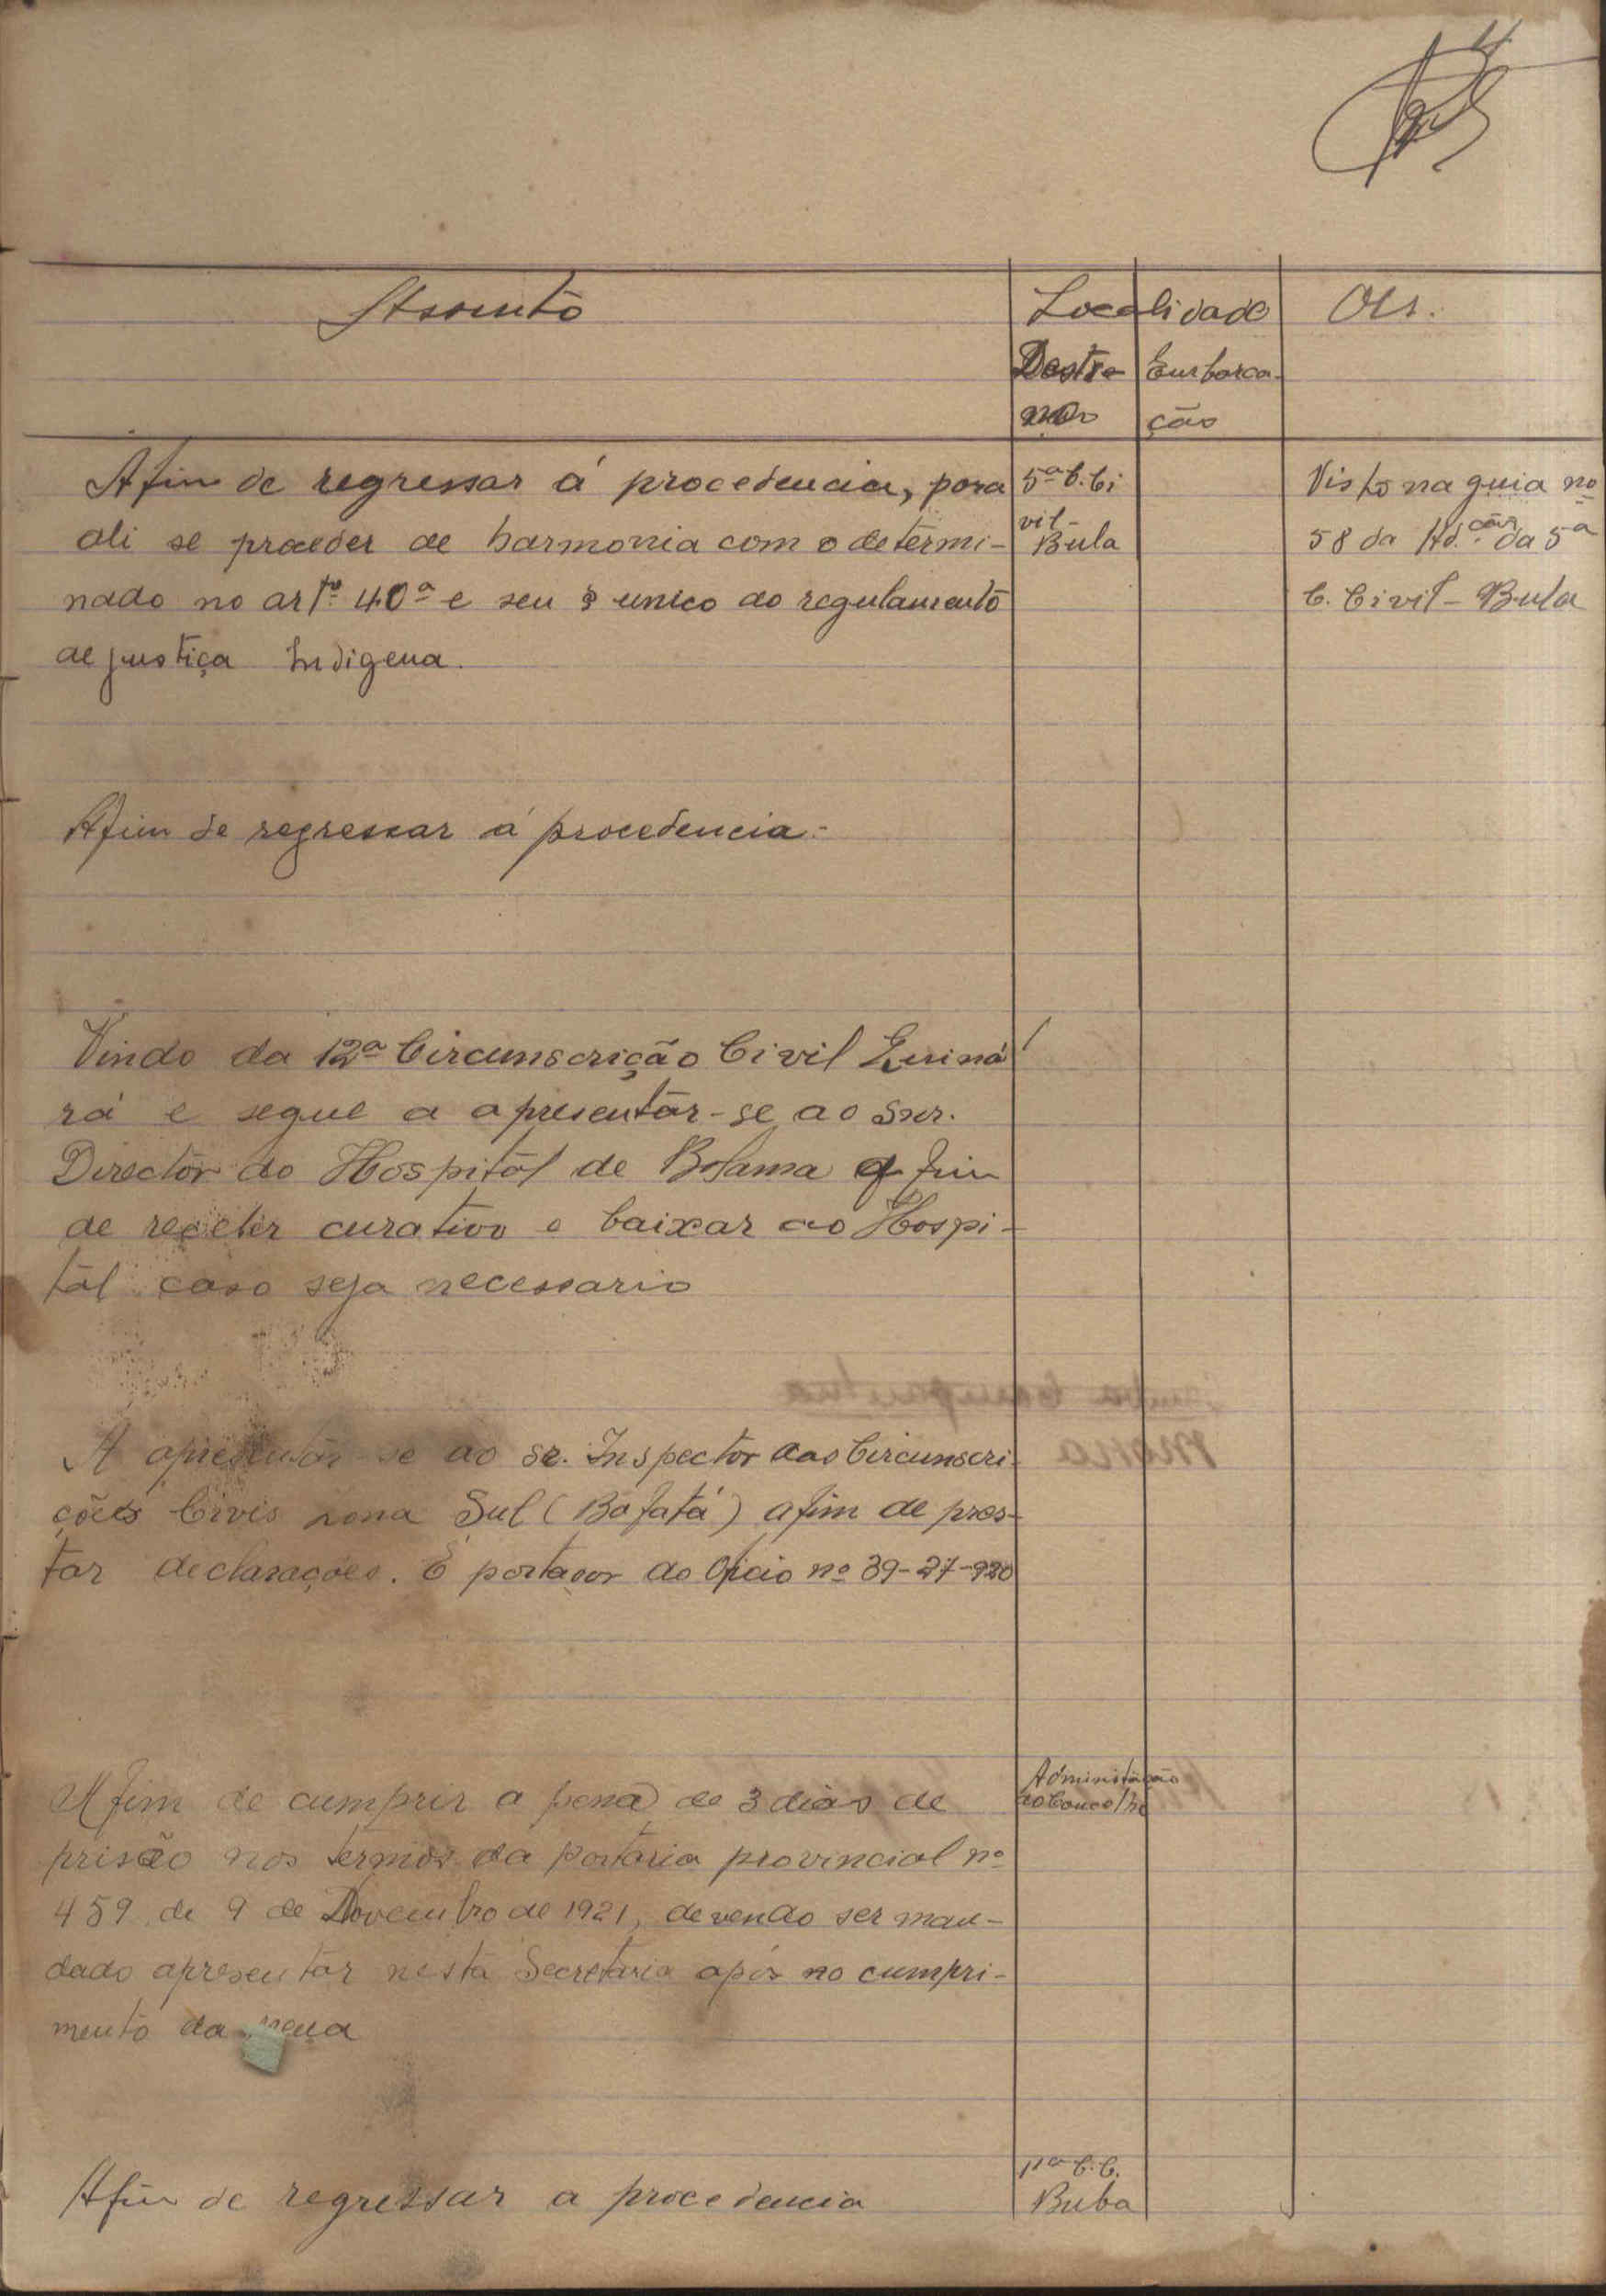 4
Assunto
Localidade
Obs.
Destino
Embarca-
ção
Afim de regressar á procedencia, para
ali se proceder de harmonia com o determi-
nado no artº 40º e seu § unico do regulamento
de justiça Indigena.
5ª C. Ci
vil-
Bula
Visto na guia nº
58 da Ad.ção da 5ª
C. Civil - Bula
Afim de regressar á procedencia.-
Vindo da 12ª Circunscrição Civil
rá e segue a apresentar-se ao Snr.
Director do Hospital de Bolama afim
de receber curativo e baixar ao Hospi-
tal caso seja necessario
A apresentar-se ao sr. Inspector das Circunscri-
ções Civis zona Sul (Bafatá) afim de pres-
tar declarações. É portador do Oficio nº 39-27-
Afim de cumprir a pena de 3 dias de
prisão nos termos da portaria provincial nº
459 de 9 de Novembro de 1921, devendo ser man-
dado apresentar nesta Secretaria após no cumpri-
mento da pena
Administração
do Concelho
Afim de regressar a procedencia
11ª C.C.
Buba